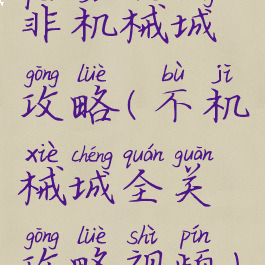 非机械城
gōng lüè bù jī
攻略(不机
xiè chéng quán guān
械城全关
gōng lüè shì pín
攻略视频)